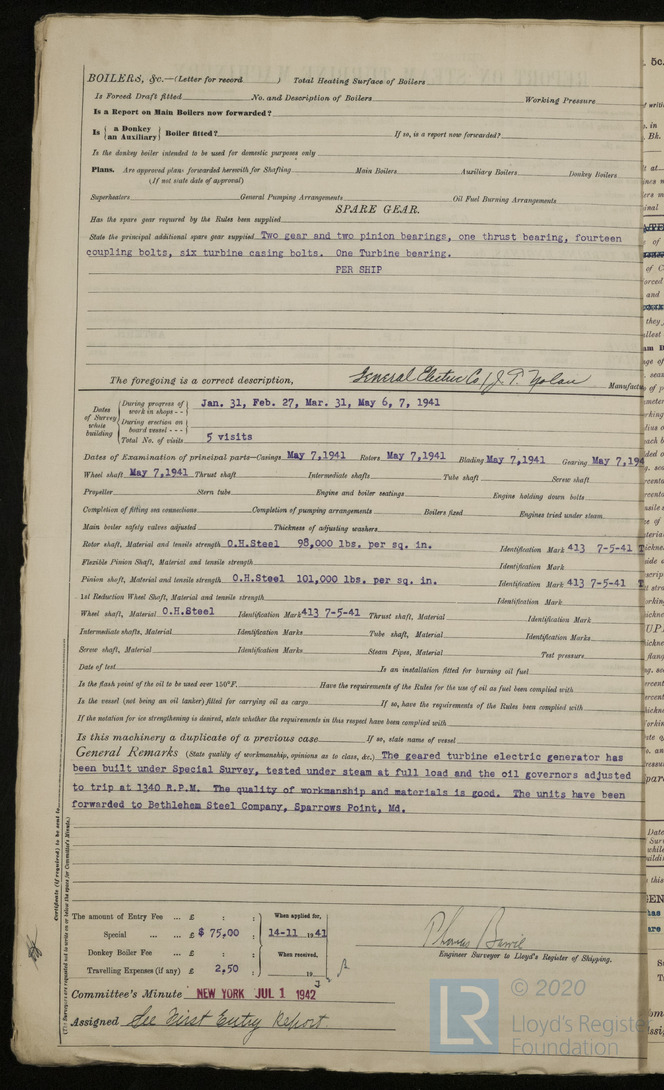 BOILERS, &c.—(Letter for record ) Total Heating Surface of Boilers
Is Forced Draft fitted No. and Description of Boilers Working Pressure
Is a Report on Main Boilers now forwarded?
Is { a Donkey / an Auxiliary } Boiler fitted? If so, is a report now forwarded?
Is the donkey boiler intended to be used for domestic purposes only
Plans. Are approved plans forwarded herewith for Shafting Main Boilers Auxiliary Boilers Donkey Boilers
(If not state date of approval)
Superheaters General Pumping Arrangements Oil Fuel Burning Arrangements
SPARE GEAR.
Has the spare gear required by the Rules been supplied
State the principal additional spare gear supplied Two gear and two pinion bearings, one thrust bearing, fourteen
coupling bolts, six turbine casing bolts. One Turbine bearing.
PER SHIP
The foregoing is a correct description, General Electric Co / J. T. Nolan Manufactu
Dates of Survey while building
During progress of work in shops - - Jan. 31, Feb. 27, Mar. 31, May 6, 7, 1941
During erection on board vessel - - -
Total No. of visits 5 visits
Dates of Examination of principal parts—Casings May 7,1941 Rotors May 7,1941 Blading May 7,1941 Gearing May 7,194
Wheel shaft May 7,1941 Thrust shaft Intermediate shafts Tube shaft Screw shaft
Propeller Stern tube Engine and boiler seatings Engine holding down bolts
Completion of fitting sea connections Completion of pumping arrangements Boilers fixed Engines tried under steam
Main boiler safety valves adjusted Thickness of adjusting washers
Rotor shaft, Material and tensile strength O.H.Steel 98,000 lbs. per sq. in. Identification Mark 413 7-5-41 T
Flexible Pinion Shaft, Material and tensile strength Identification Mark
Pinion shaft, Material and tensile strength O.H.Steel 101,000 lbs. per sq. in. Identification Mark 413 7-5-41 T
1st Reduction Wheel Shaft, Material and tensile strength Identification Mark
Wheel shaft, Material O.H.Steel Identification Mark 413 7-5-41 Thrust shaft, Material Identification Mark
Intermediate shafts, Material Identification Marks Tube shaft, Material Identification Marks
Screw shaft, Material Identification Marks Steam Pipes, Material Test pressure
Date of test Is an installation fitted for burning oil fuel
Is the flash point of the oil to be used over 150°F. Have the requirements of the Rules for the use of oil as fuel been complied with
Is the vessel (not being an oil tanker) fitted for carrying oil as cargo If so, have the requirements of the Rules been complied with
If the notation for ice strengthening is desired, state whether the requirements in this respect have been complied with
Is this machinery a duplicate of a previous case If so, state name of vessel
General Remarks (State quality of workmanship, opinions as to class, &c.) The geared turbine electric generator has
been built under Special Survey, tested under steam at full load and the oil governors adjusted
to trip at 1340 R.P.M. The quality of workmanship and materials is good. The units have been
forwarded to Bethlehem Steel Company, Sparrows Point, Md.
Certificate (if required) to be sent to
(The Surveyors are requested not to write on or below the space for Committee's Minute.)
The amount of Entry Fee ... £ : : When applied for,
Special ... ... £ $ 75,00 : 14-11 1941
Donkey Boiler Fee ... £ : : When received,
Travelling Expenses (if any) £ 2,50 : 19
Engineer Surveyor to Lloyd's Register of Shipping.
Committee's Minute NEW YORK JUL 1 1942
Assigned See First Entry Report
© 2020
LR
Lloyd's Register
Foundation